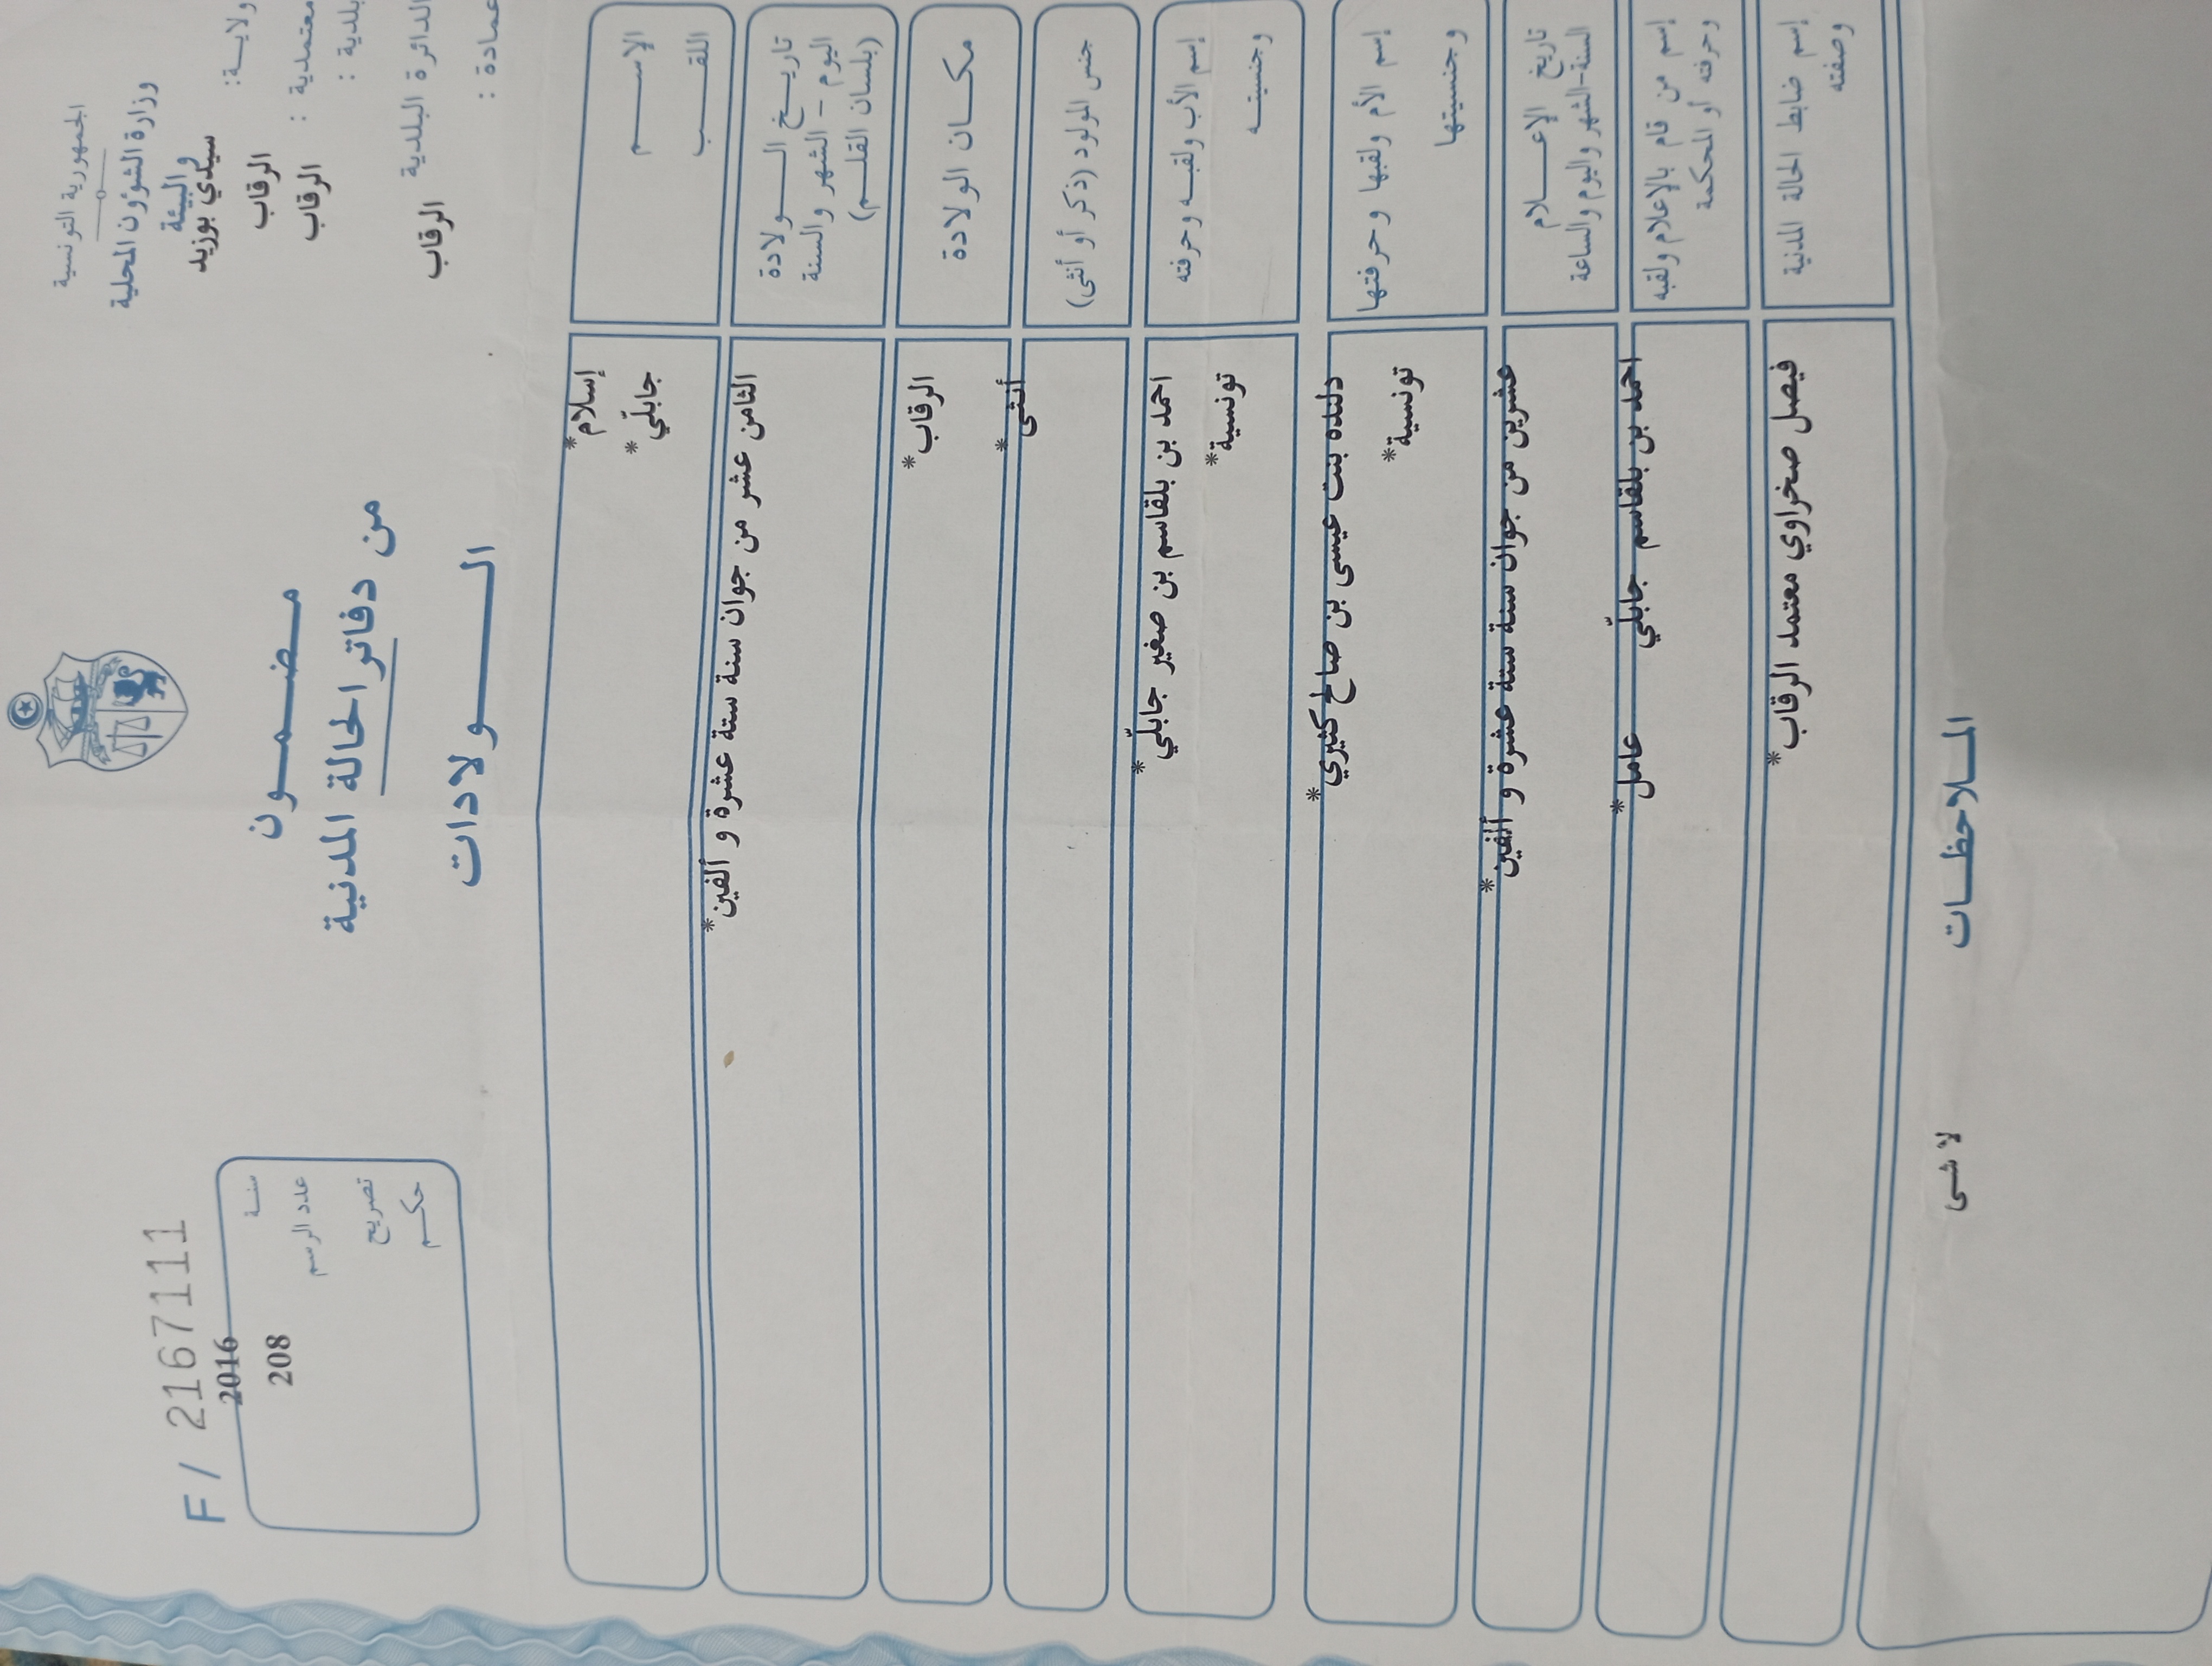 الجمهورية التونسية
وزارة الشؤون المحلية
والبيئة
ولايــة: سيدي بوزيد
معتمدية : الرقاب
بلدية : الرقاب
الدائرة البلدية
عمادة : الرقاب
مـضـمـــون
من دفاتر الحالة المدنية
الـــولادات
F / 2167111
سنـة 2016
عدد الرسم 208
تصريح
حكـم
الإســـم إسلام*
اللقـــب جابلّي*
تاريــخ الــولادة
اليوم – الشهر والسنة
(بلسان القلـم)
الثامن عشر من جوان سنة ستة عشرة و ألفين*
مكــان الولادة الرقاب*
جنس المولود (ذكر أو أنثى) أنثى*
إسم الأب ولقبـه وحرفته احمد بن بلقاسم بن صغير جابلّي*
وجنسيتــه تونسية*
إسم الأم ولقبها وحرفتها دلنده بنت عيسى بن صالح كثيري*
وجنسيتها تونسية*
تاريخ الإعـــلام
السنة-الشهر واليوم والساعة
عشرين من جوان سنة ستة عشرة و ألفين*
إسم من قام بالإعلام ولقبه
وحرفته أو المحكمة
احمد بن بلقاسم جابلّي عامل*
إسم ضابط الحالة المدنية
وصفته
فيصل صخراوي معتمد الرقاب*
المـلاحظـات
لا شى